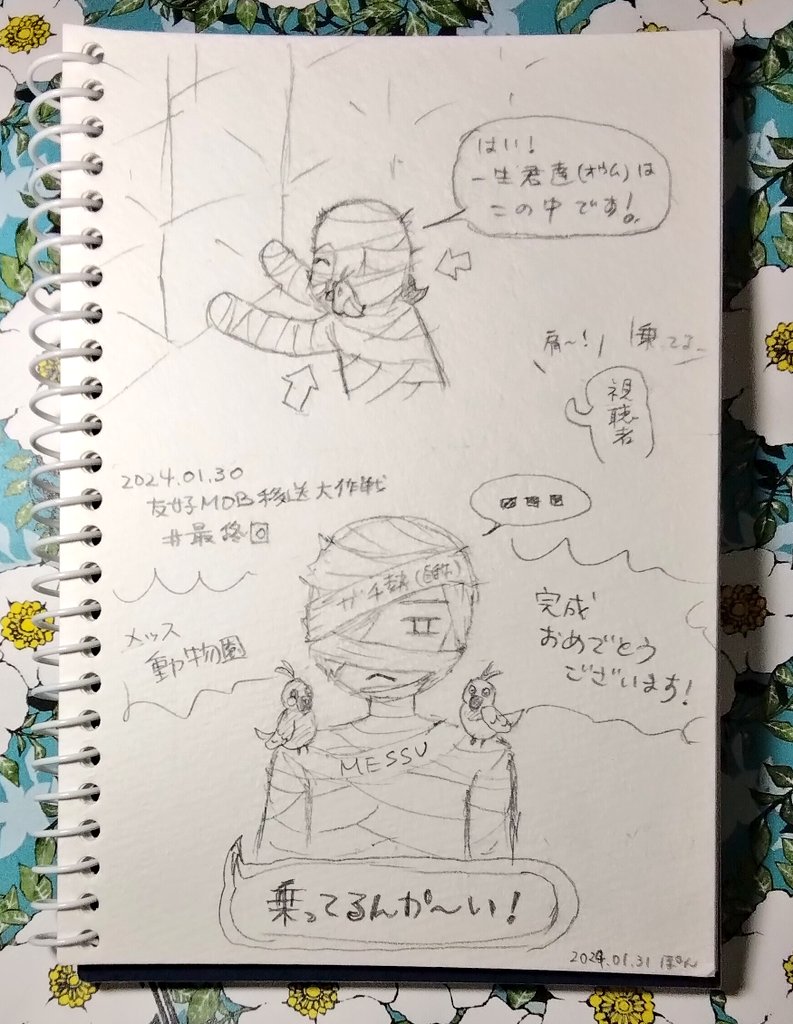 はい!
一生君達(オウム)は
この中です!
肩〜!
乗ってる
視聴者
2024.01.30
友好MOB移送大作戦
#最終回
ガチ勢(自称)
メッス
動物園
完成
おめでとう
ございます!
MESSU
乗ってるんか〜い!
2024.01.31 ぽん